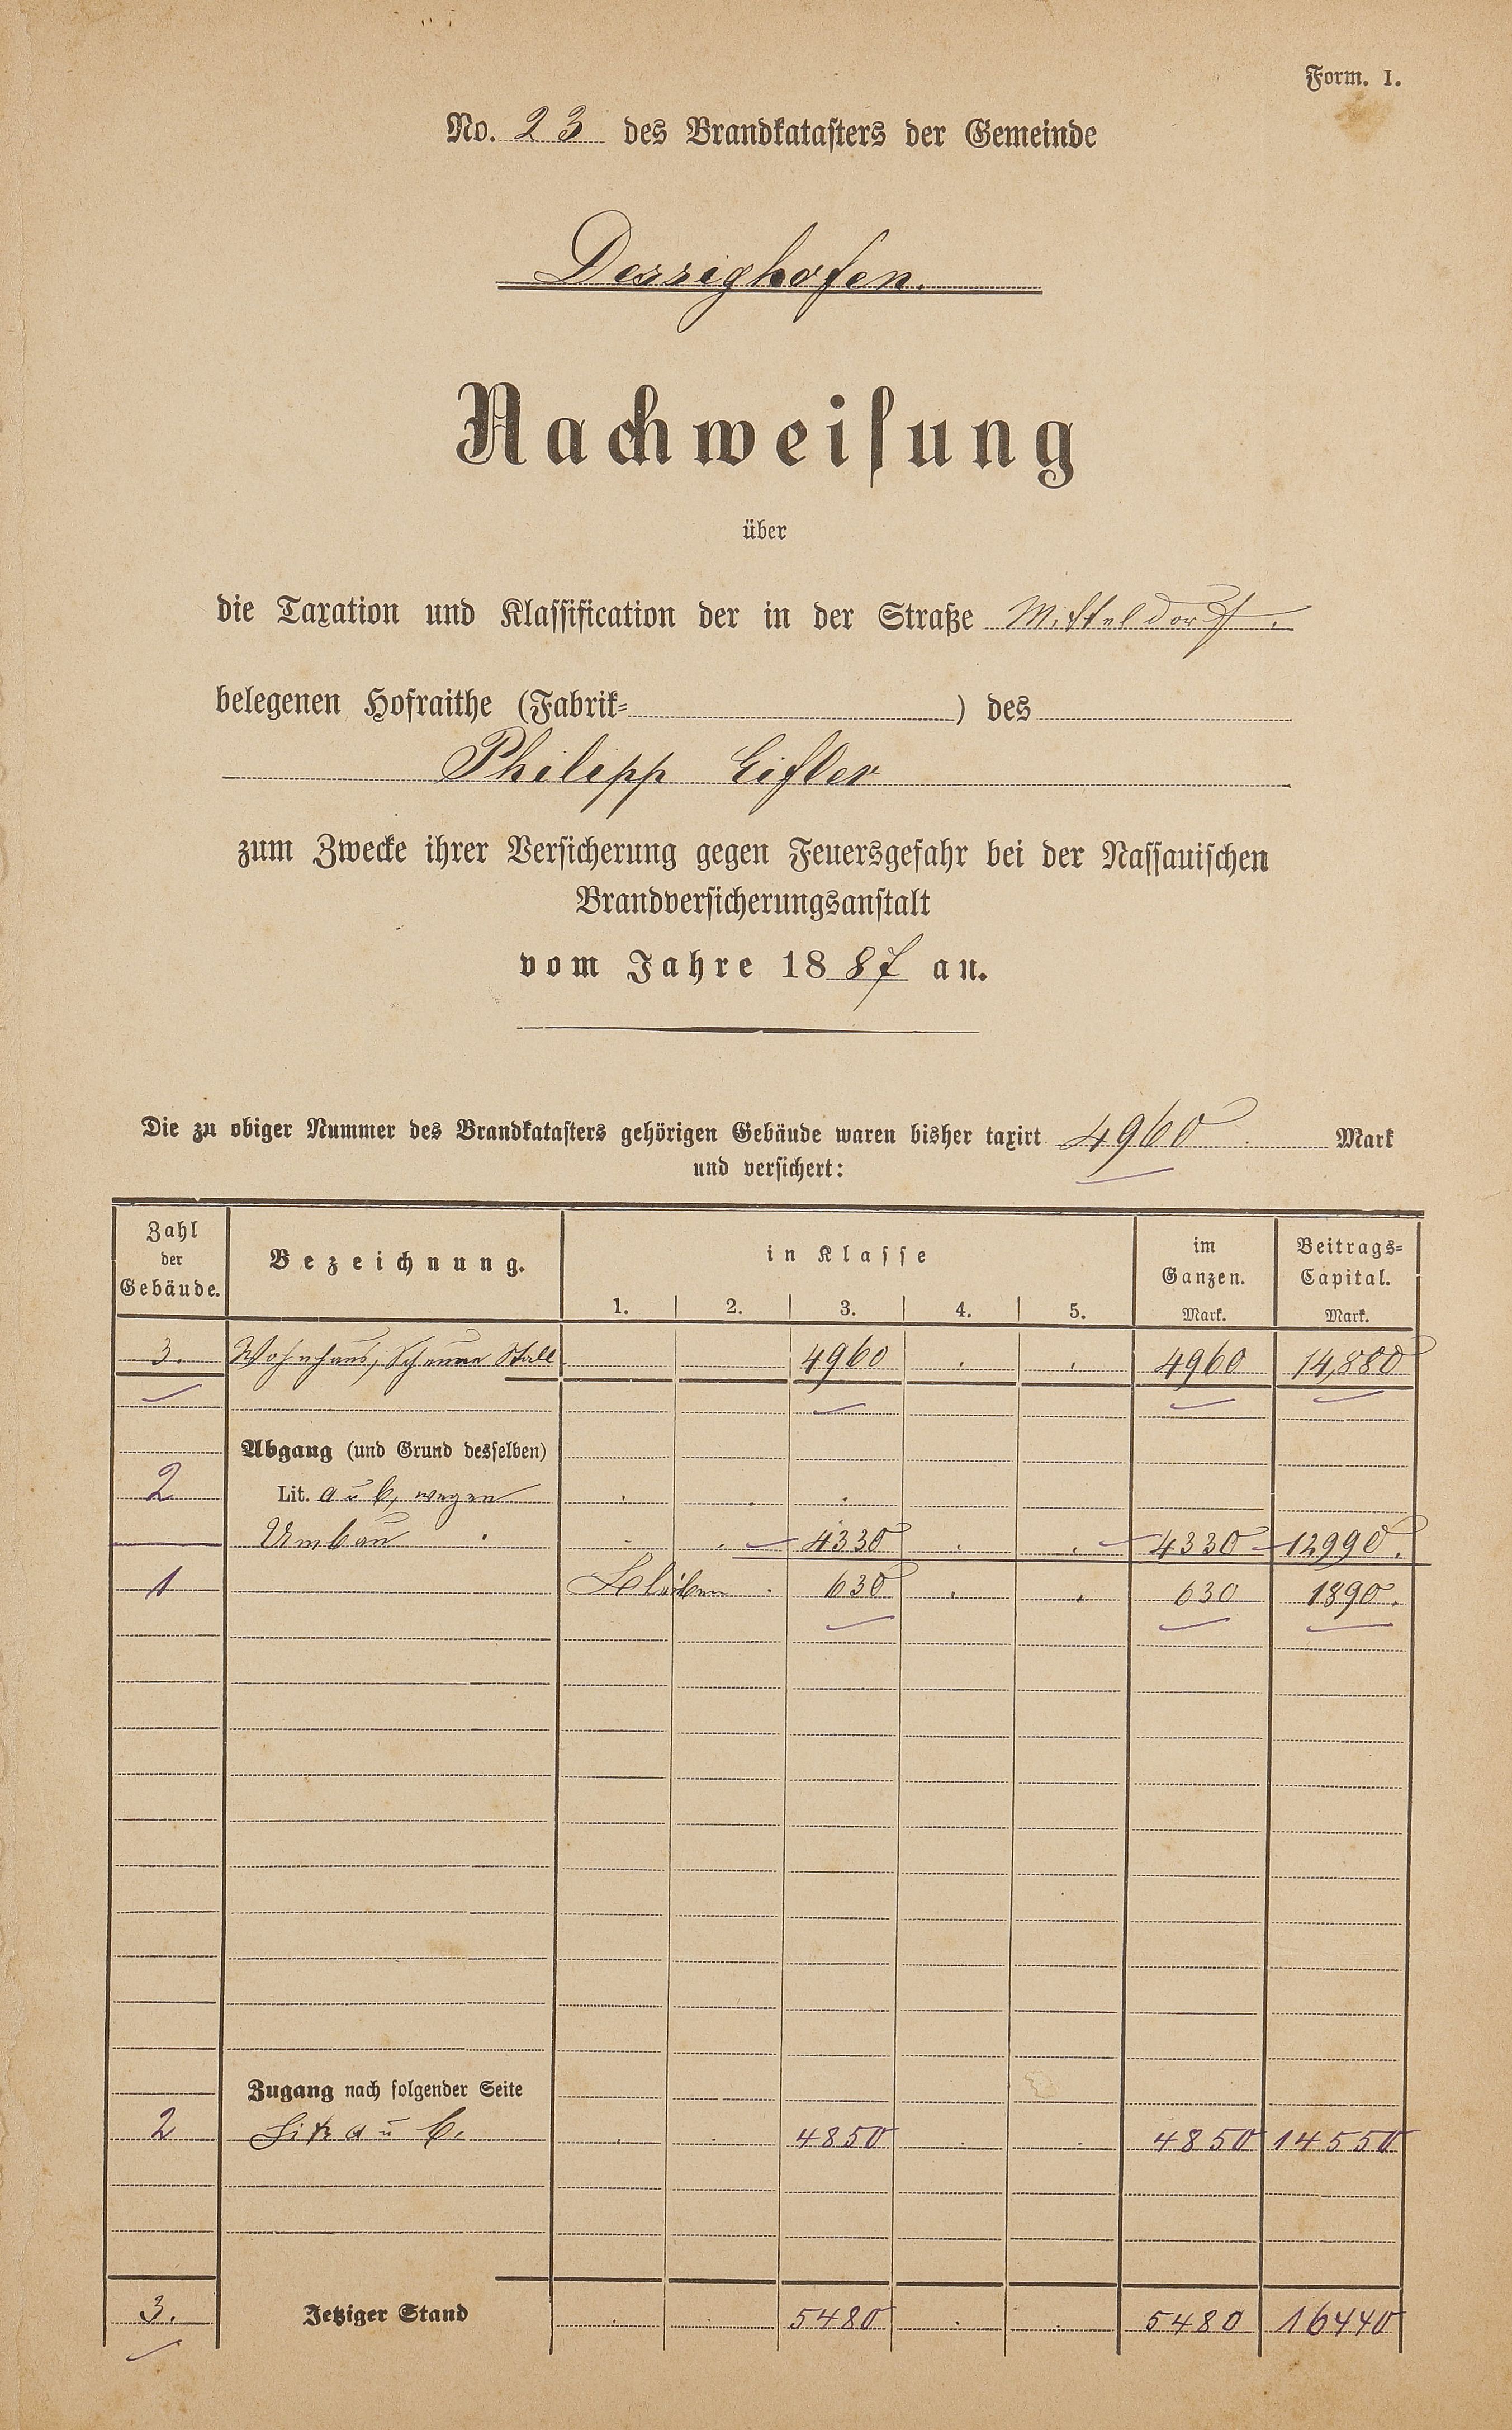 Form. I.
No. 23 des Brandkatasters der Gemeinde
Dessighofen.
Nachweisung
über
die Taxation und Klassification der in der Straße Mitteldorf.
belegenen Hofraithe (Fabrik= ) des
Philipp Eisler
zum Zwecke ihrer Versicherung gegen Feuersgefahr bei der Nassauischen
Brandversicherungsanstalt
vom Jahre 1887 an.
Die zu obiger Nummer des Brandkatasters gehörigen Gebäude waren bisher taxirt 4960 Mark
und versichert:
Zahl der Gebäude. Bezeichnung. in Klasse im Ganzen. Beitrags=Capital.
1. 2. 3. 4. 5. Mark. Mark.
3. Wohnhaus, Scheune Stall 4960 . . 4960 14,880
Abgang (und Grund desselben)
2 Lit. a u b, wegen
Umbau 4330 . . 4330 12990.
1 Bleiben . 630 . . 630 1890.
Zugang nach folgender Seite
2 Litr a u b. . . 4850 . . 4850 14550
3. Jetziger Stand . . 5480 . . 5480 16440